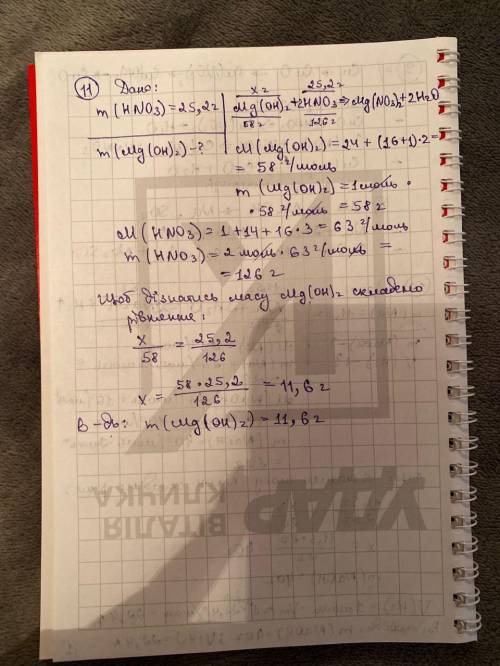 11 Дано:
m(HNO3)=25,2г
m(Mg(OH)2)-?
xг 25,2г
Mg(OH)2+2HNO3⇒Mg(NO3)2+2H2O
58г 126г
M(Mg(OH)2)=24+(16+1)·2=
=58 г/моль
m(Mg(OH)2)=1моль·
·58г/моль=58г
M(HNO3)=1+14+16·3=63г/моль
m(HNO3)=2моль·63г/моль=
=126г
Щоб дізнатись масу Mg(OH)2 складемо
рівняння:
x/58=25,2/126
x=58·25,2/126=11,6г
В-дь: m(Mg(OH)2)=11,6г
УДАР
ВІТАЛІЯ
КЛИЧКА